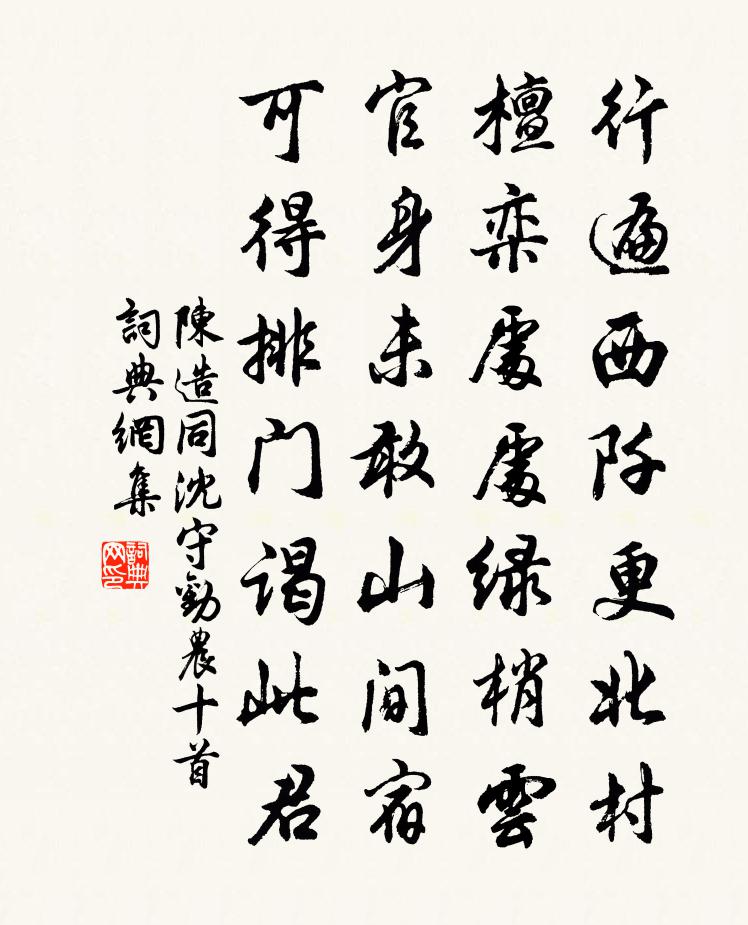 行遍西阡更北村
檀栾處處绿梢雲
官身未敢山间宿
可得排门谒此君
陳造同沈守勸農十首
詞典網集
詞典网印